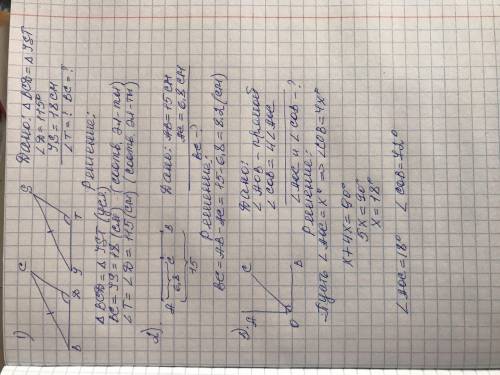 1)
C
S
B
D
Y
T
Дано: △BCD = △YST
∠D = 115°
YS = 18 см
∠T = ? BC = ?
Решение:
△BCD = △YST (усл)
BC = YS = 18 (см) (соотв. эл-ты)
∠T = ∠D = 115 (см) (соотв. эл-ты)
2)
A C B
6.8
15
Дано: AB = 15 см
AC = 6.8 см
BC - ?
Решение:
BC = AB - AC = 15 - 6.8 = 8.2 (см)
3)
A
C
O
B
Дано:
∠AOB - прямой
∠COB = 4∠AOC
∠AOC и ∠COB - ?
Решение:
Пусть ∠AOC = x° => ∠COB = 4x°
x + 4x = 90°
5x = 90°
x = 18°
∠AOC = 18° ∠COB = 72°